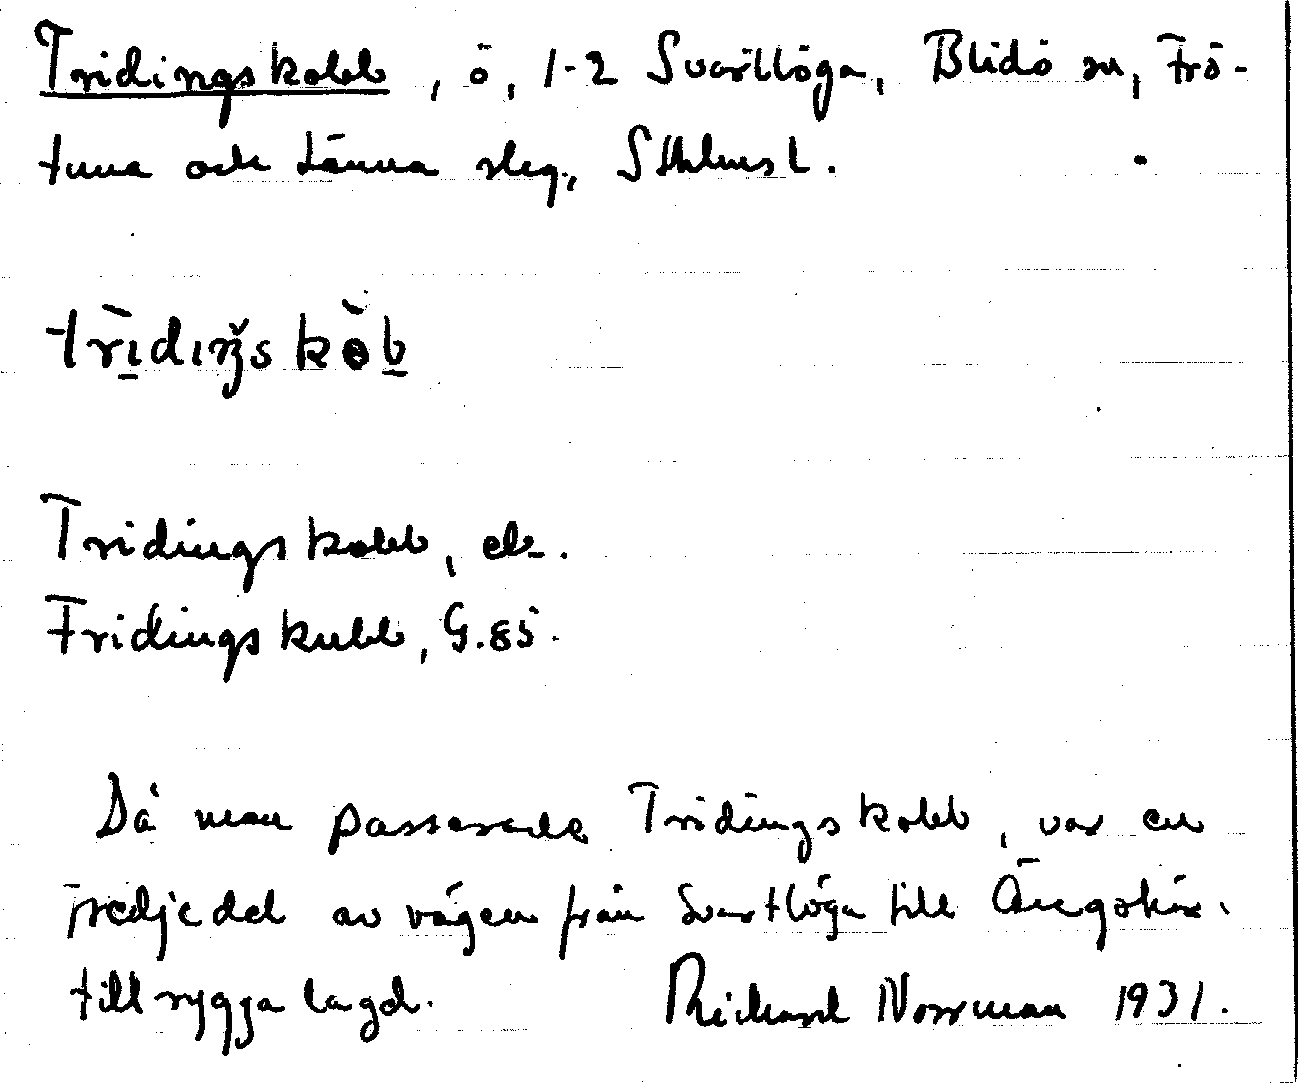 Tridingskobb, ö, 1-2 Svartlöga, Blidö sn, Frö-
tuna och Länna slg, Sthlms l.
Tridingskobb, ek.
Fridingskubb, G.85.
Då man passerade Tridingskobb, var en
tredjedel av vägen från Svartlöga till Ängskär
tillryggalagd. Richard Norrman 1931.